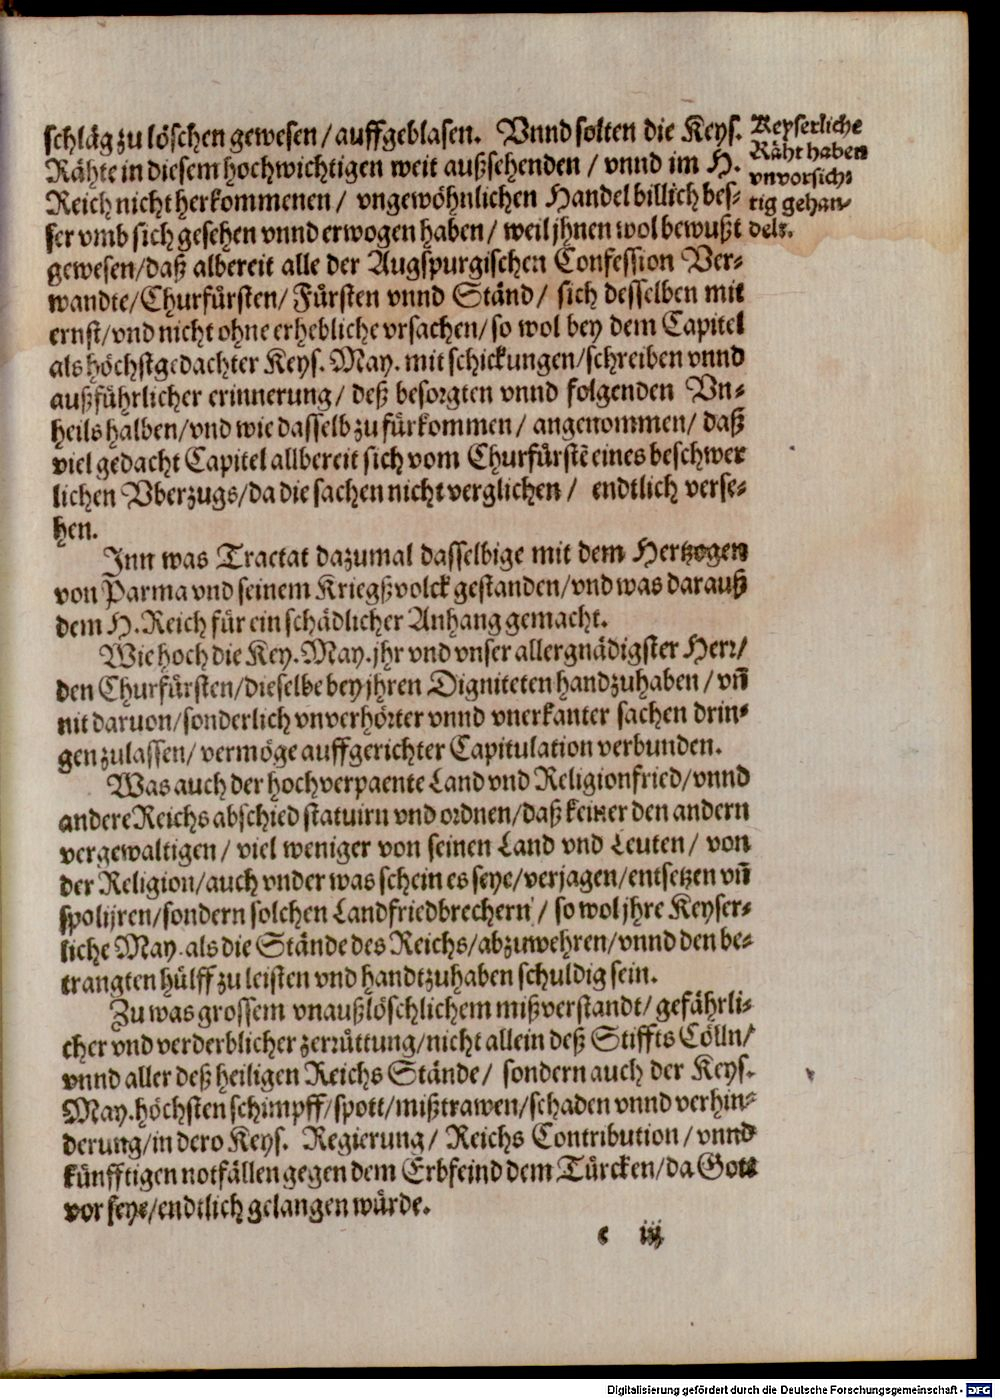 schläg zu löschen gewesen / auffgeblasen. Vnnd solten die Keys.
Rähte in diesem hochwichtigen weit außsehenden / vnnd im H.
Reich nicht herkommenen / vngewöhnlichen Handel billich bes-
ser vmb sich gesehen vnnd erwogen haben / weil jhnen wol bewußt
gewesen / daß albereit alle der Augspurgischen Confession Ver-
wandte / Churfürsten / Fürsten vnnd Ständ / sich desselben mit
ernst / vnd nicht ohne erhebliche vrsachen / so wol bey dem Capitel
als höchstgedachter Keys. May. mit schickungen / schreiben vnnd
außführlicher erinnerung / deß besorgten vnnd folgenden Vn-
heils halben / vnd wie dasselb zu fürkommen / angenommen / daß
viel gedacht Capitel allbereit sich vom Churfürstẽ eines beschwer
lichen Vberzugs / da die sachen nicht verglichen / endtlich verse-
hen.
Inn was Tractat dazumal dasselbige mit dem Hertzogen
von Parma vnd seinem Kriegßvolck gestanden / vnd was darauß
dem H. Reich für ein schädlicher Anhang gemacht.
Wie hoch die Key. May. jhr vnd vnser allergnädigster Herr /
den Churfürsten / dieselbe bey jhren Digniteten handzuhaben / vñ
nit daruon / sonderlich vnverhörter vnnd vnerkanter sachen drin-
gen zulassen / vermöge auffgerichter Capitulation verbunden.
Was auch der hochverpaente Land vnd Religionfried / vnnd
andere Reichs abschied statuirn vnd ordnen / daß keiner den andern
vergewaltigen / viel weniger von seinen Land vnd Leuten / von
der Religion / auch vnder was schein es seye / verjagen / entsetzen vñ
spolijren / sondern solchen Landfriedbrechern / so wol jhre Keyser-
liche May. als die Stände des Reichs / abzuwehren / vnnd den be-
trangten hülff zu leisten vnd handtzuhaben schuldig sein.
Zu was grossem vnaußlöschlichem mißverstandt / gefährli-
cher vnd verderblicher zerrüttung / nicht allein deß Stiffts Cölln /
vnnd aller deß heiligen Reichs Stände / sondern auch der Keys.
May. höchsten schimpff / spott / mißtrawen / schaden vnnd verhin-
derung / in dero Keys. Regierung / Reichs Contribution / vnnd
künfftigen notfällen gegen dem Erbfeind dem Türcken / da Gott
vor seye / endtlich gelangen würde.
c iij
Keyserliche
Räht haben
vnvorsich-
tig gehan-
delt.
Digitalisierung gefördert durch die Deutsche Forschungsgemeinschaft - DFG